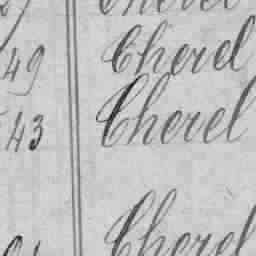 Cherel
49 Cherel
43 Cherel
Cherel